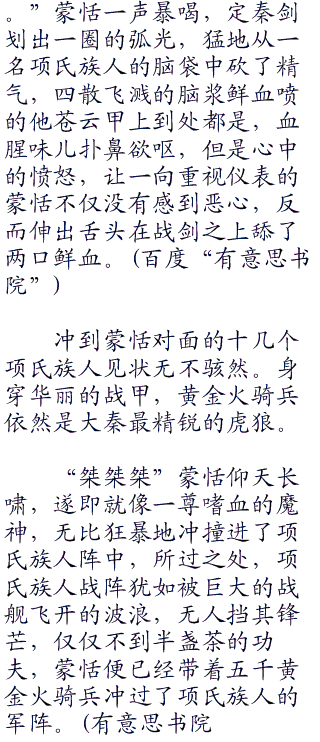 。”蒙恬一声暴喝，定秦剑
划出一圈的弧光，猛地从一
名项氏族人的脑袋中砍了精
气，四散飞溅的脑浆鲜血喷
的他苍云甲上到处都是，血
腥味儿扑鼻欲呕，但是心中
的愤怒，让一向重视仪表的
蒙恬不仅没有感到恶心，反
而伸出舌头在战剑之上舔了
两口鲜血。(百度“有意思书
院”)
冲到蒙恬对面的十几个
项氏族人见状无不骇然。身
穿华丽的战甲，黄金火骑兵
依然是大秦最精锐的虎狼。
“桀桀桀”蒙恬仰天长
啸，遂即就像一尊嗜血的魔
神，无比狂暴地冲撞进了项
氏族人阵中，所过之处，项
氏族人战阵犹如被巨大的战
舰飞开的波浪，无人挡其锋
芒，仅仅不到半盏茶的功
夫，蒙恬便已经带着五千黄
金火骑兵冲过了项氏族人的
军阵。(有意思书院